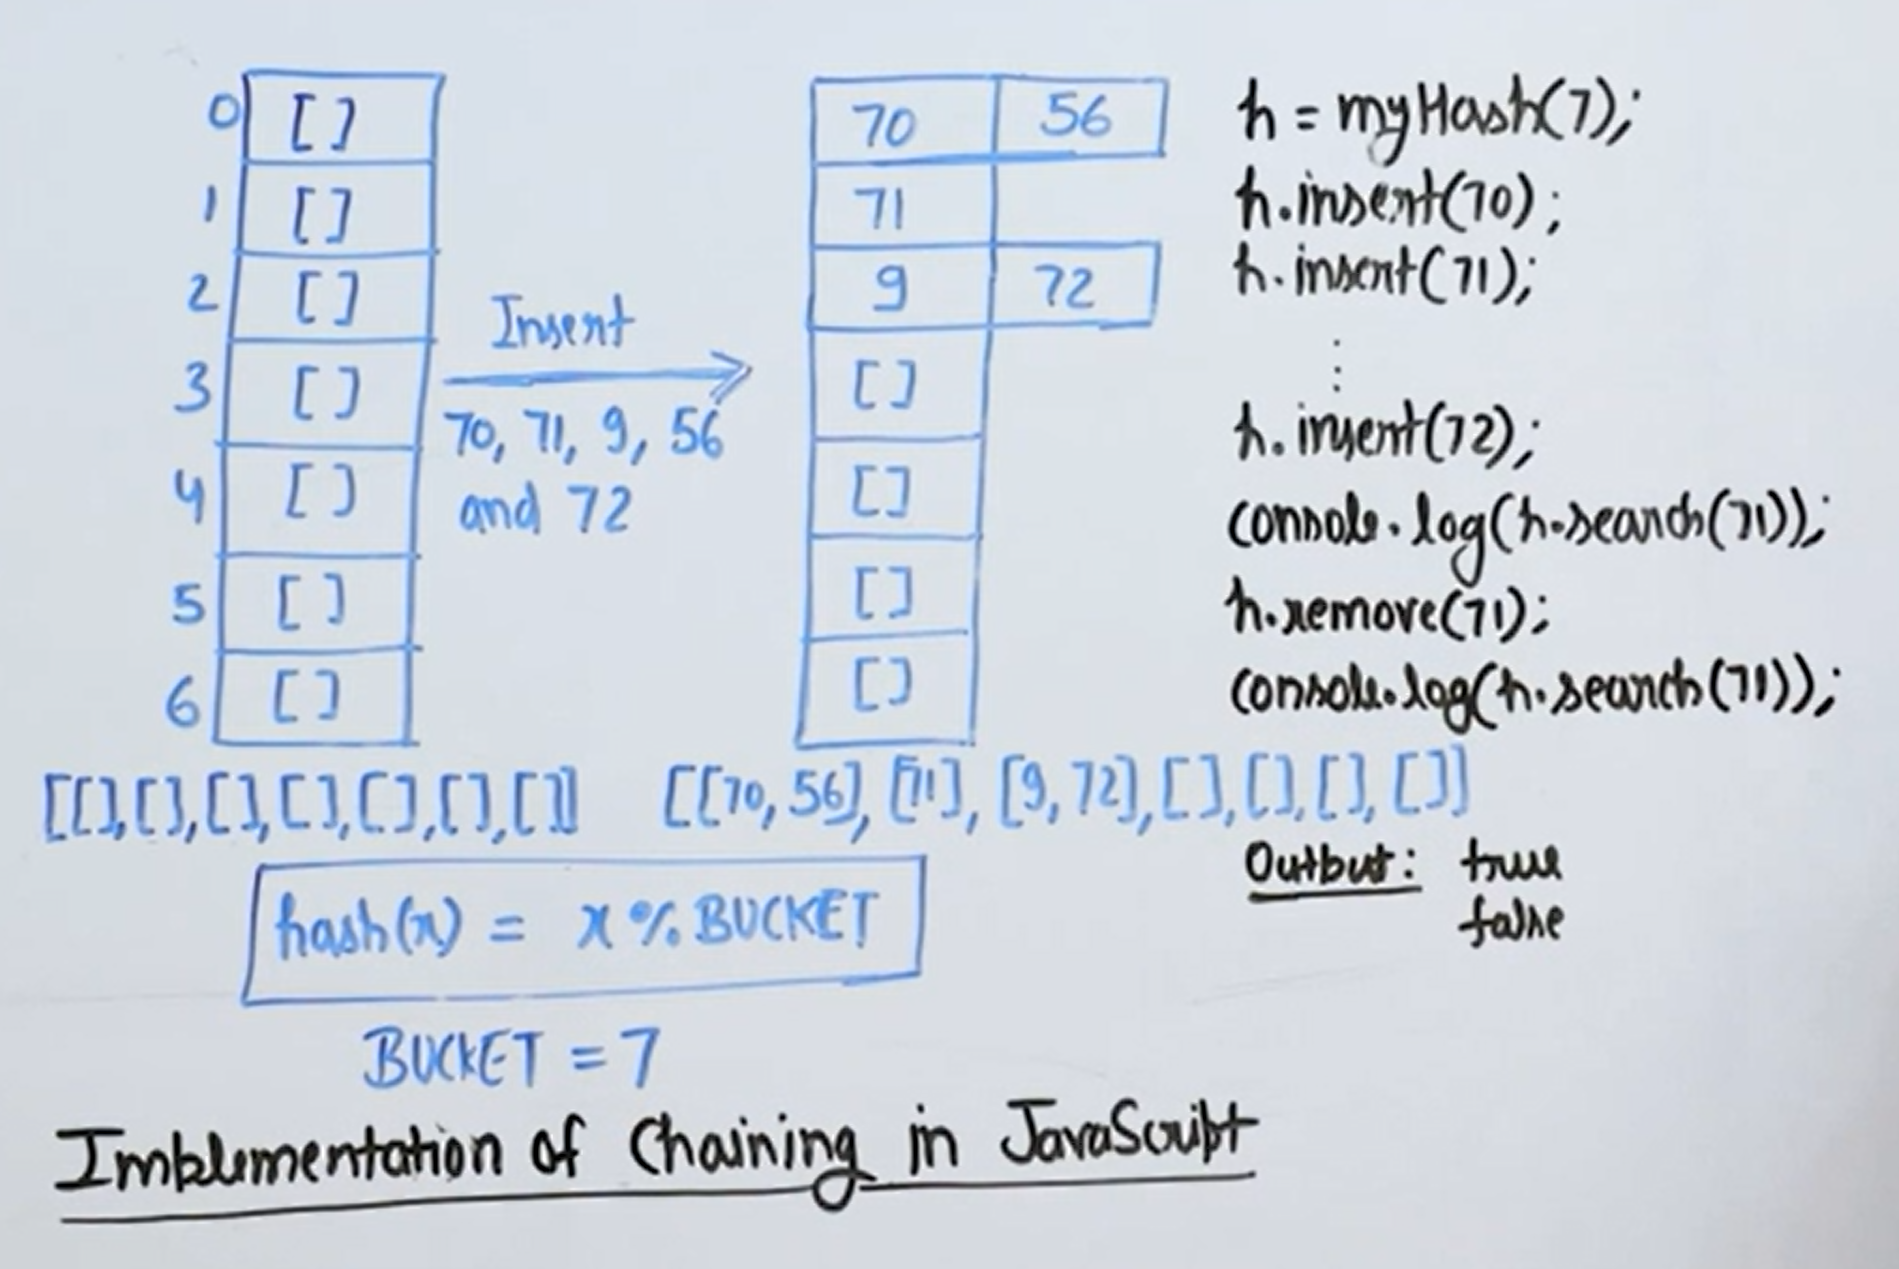 0 []
1 []
2 []
3 []
4 []
5 []
6 []
Insert
70, 71, 9, 56
and 72
70 56
71
9 72
[]
[]
[]
[]
h = myHash(7);
h.insert(70);
h.insert(71);
⋮
h.insert(72);
console.log(h.search(71));
h.remove(71);
console.log(h.search(71));
[[],[],[],[],[],[],[]]
[[70, 56], [71], [9, 72], [], [], [], []]
Output: true
false
hash(x) = x % BUCKET
BUCKET = 7
Implementation of Chaining in JavaScript